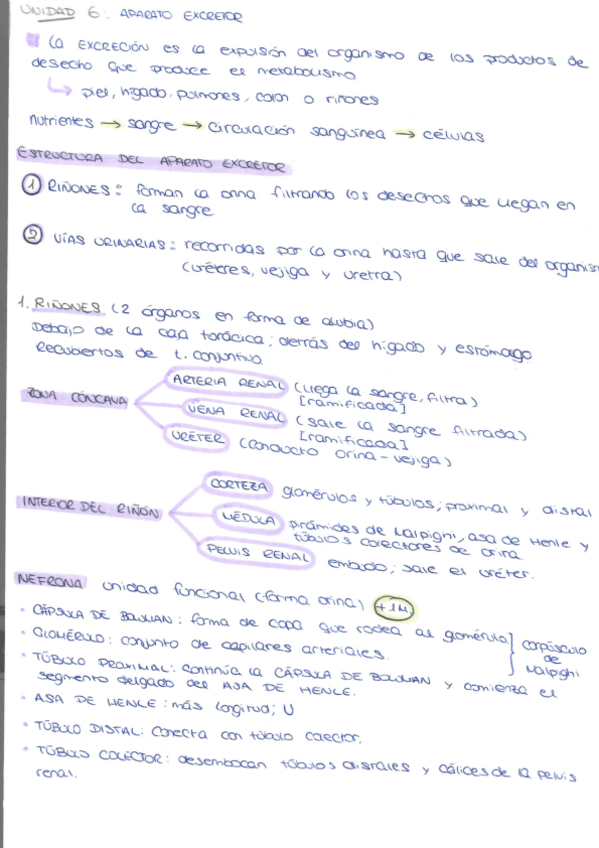 UNIDAD 6: APARATO EXCRETOR
La EXCRECIÓN es la expulsión del organismo de los productos de
desecho que produce el metabolismo
↳ piel, hígado, pulmones, colon o riñones
nutrientes → sangre → circulación sanguínea → células
ESTRUCTURA DEL APARATO EXCRETOR
① RIÑONES: forman la orina filtrando los desechos que llegan en
la sangre.
② VÍAS URINARIAS: recorridas por la orina hasta que sale del organis
(uréteres, vejiga y uretra)
1. RIÑONES (2 órganos en forma de alubia)
Debajo de la caja torácica; detrás del hígado y estómago
Recubiertos de t. conjuntivo.
ZONA CÓNCAVA
ARTERIA RENAL (llega la sangre, filtra)
[ramificada]
VENA RENAL (sale la sangre filtrada)
[ramificada]
URÉTER (conducto orina - vejiga)
INTERIOR DEL RIÑÓN
CORTEZA glomérulos y túbulos; proximal y distal
MÉDULA pirámides de Malpighi, asa de Henle y
túbulos colectores de orina.
PELVIS RENAL embudo; sale el uréter.
NEFRONA unidad funcional (forma orina) +1M.
• CÁPSULA DE BOWMAN: forma de copa que rodea al glomérulo
• GLOMÉRULO: conjunto de capilares arteriales.
corpúsculo
de
Malpighi
• TÚBULO PROXIMAL: continúa la CÁPSULA DE BOWMAN y comienza el
segmento delgado del ASA DE HENLE.
• ASA DE HENLE: más longitud; U
• TÚBULO DISTAL: Conecta con túbulo colector.
• TÚBULO COLECTOR: desembocan túbulos distales y cálices de la pelvis
renal.